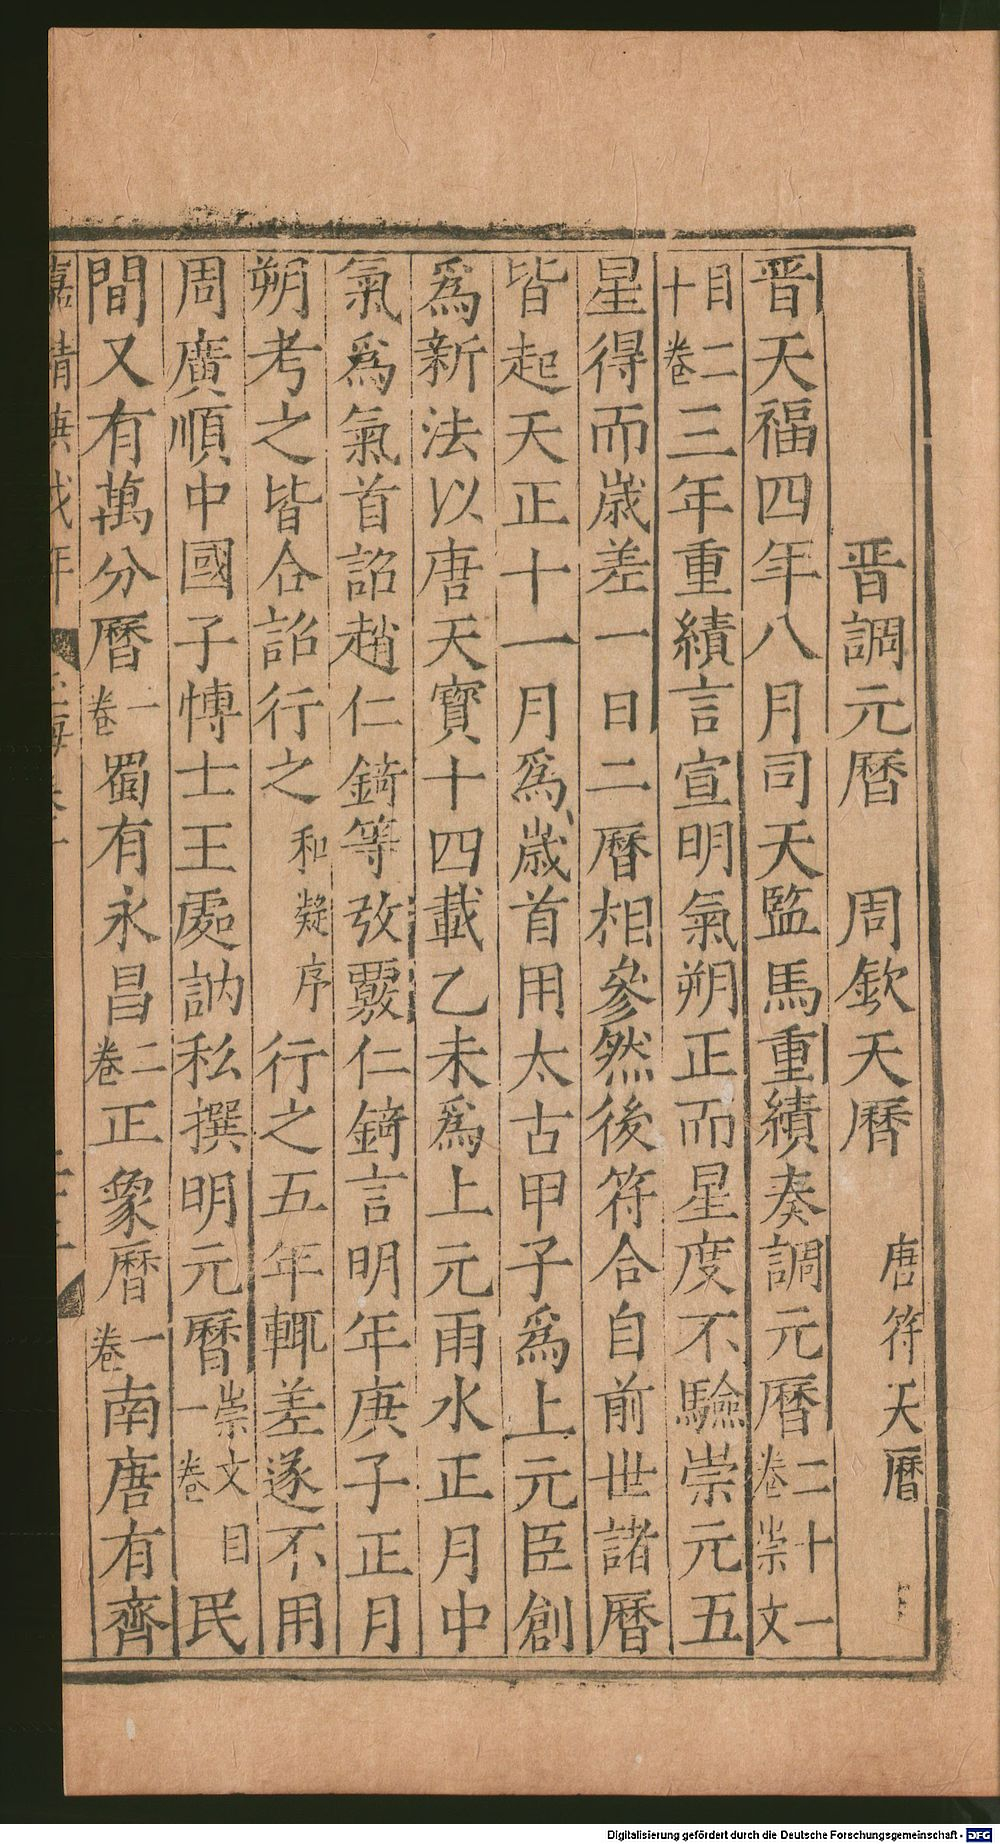 晋調元曆　周欽天曆　唐符天曆
晋天福四年八月司天監馬重績奏調元曆二十一卷崇文
目二十卷三年重績言宣明氣朔正而星度不驗崇元五
星得而歳差一日二曆相參然後符合自前世諸曆
皆起天正十一月爲歳首用太古甲子爲上元臣創
爲新法以唐天寳十四載乙未爲上元雨水正月中
氣爲氣首詔趙仁錡等攷覈仁錡言明年庚子正月
朔考之皆合詔行之和凝序行之五年輒差遂不用
周廣順中國子博士王處訥私撰明元曆崇文目一卷民
間又有萬分曆一卷蜀有永昌二卷正象曆一卷南唐有齊
嘉靖
Digitalisierung gefördert durch die Deutsche Forschungsgemeinschaft - DFG